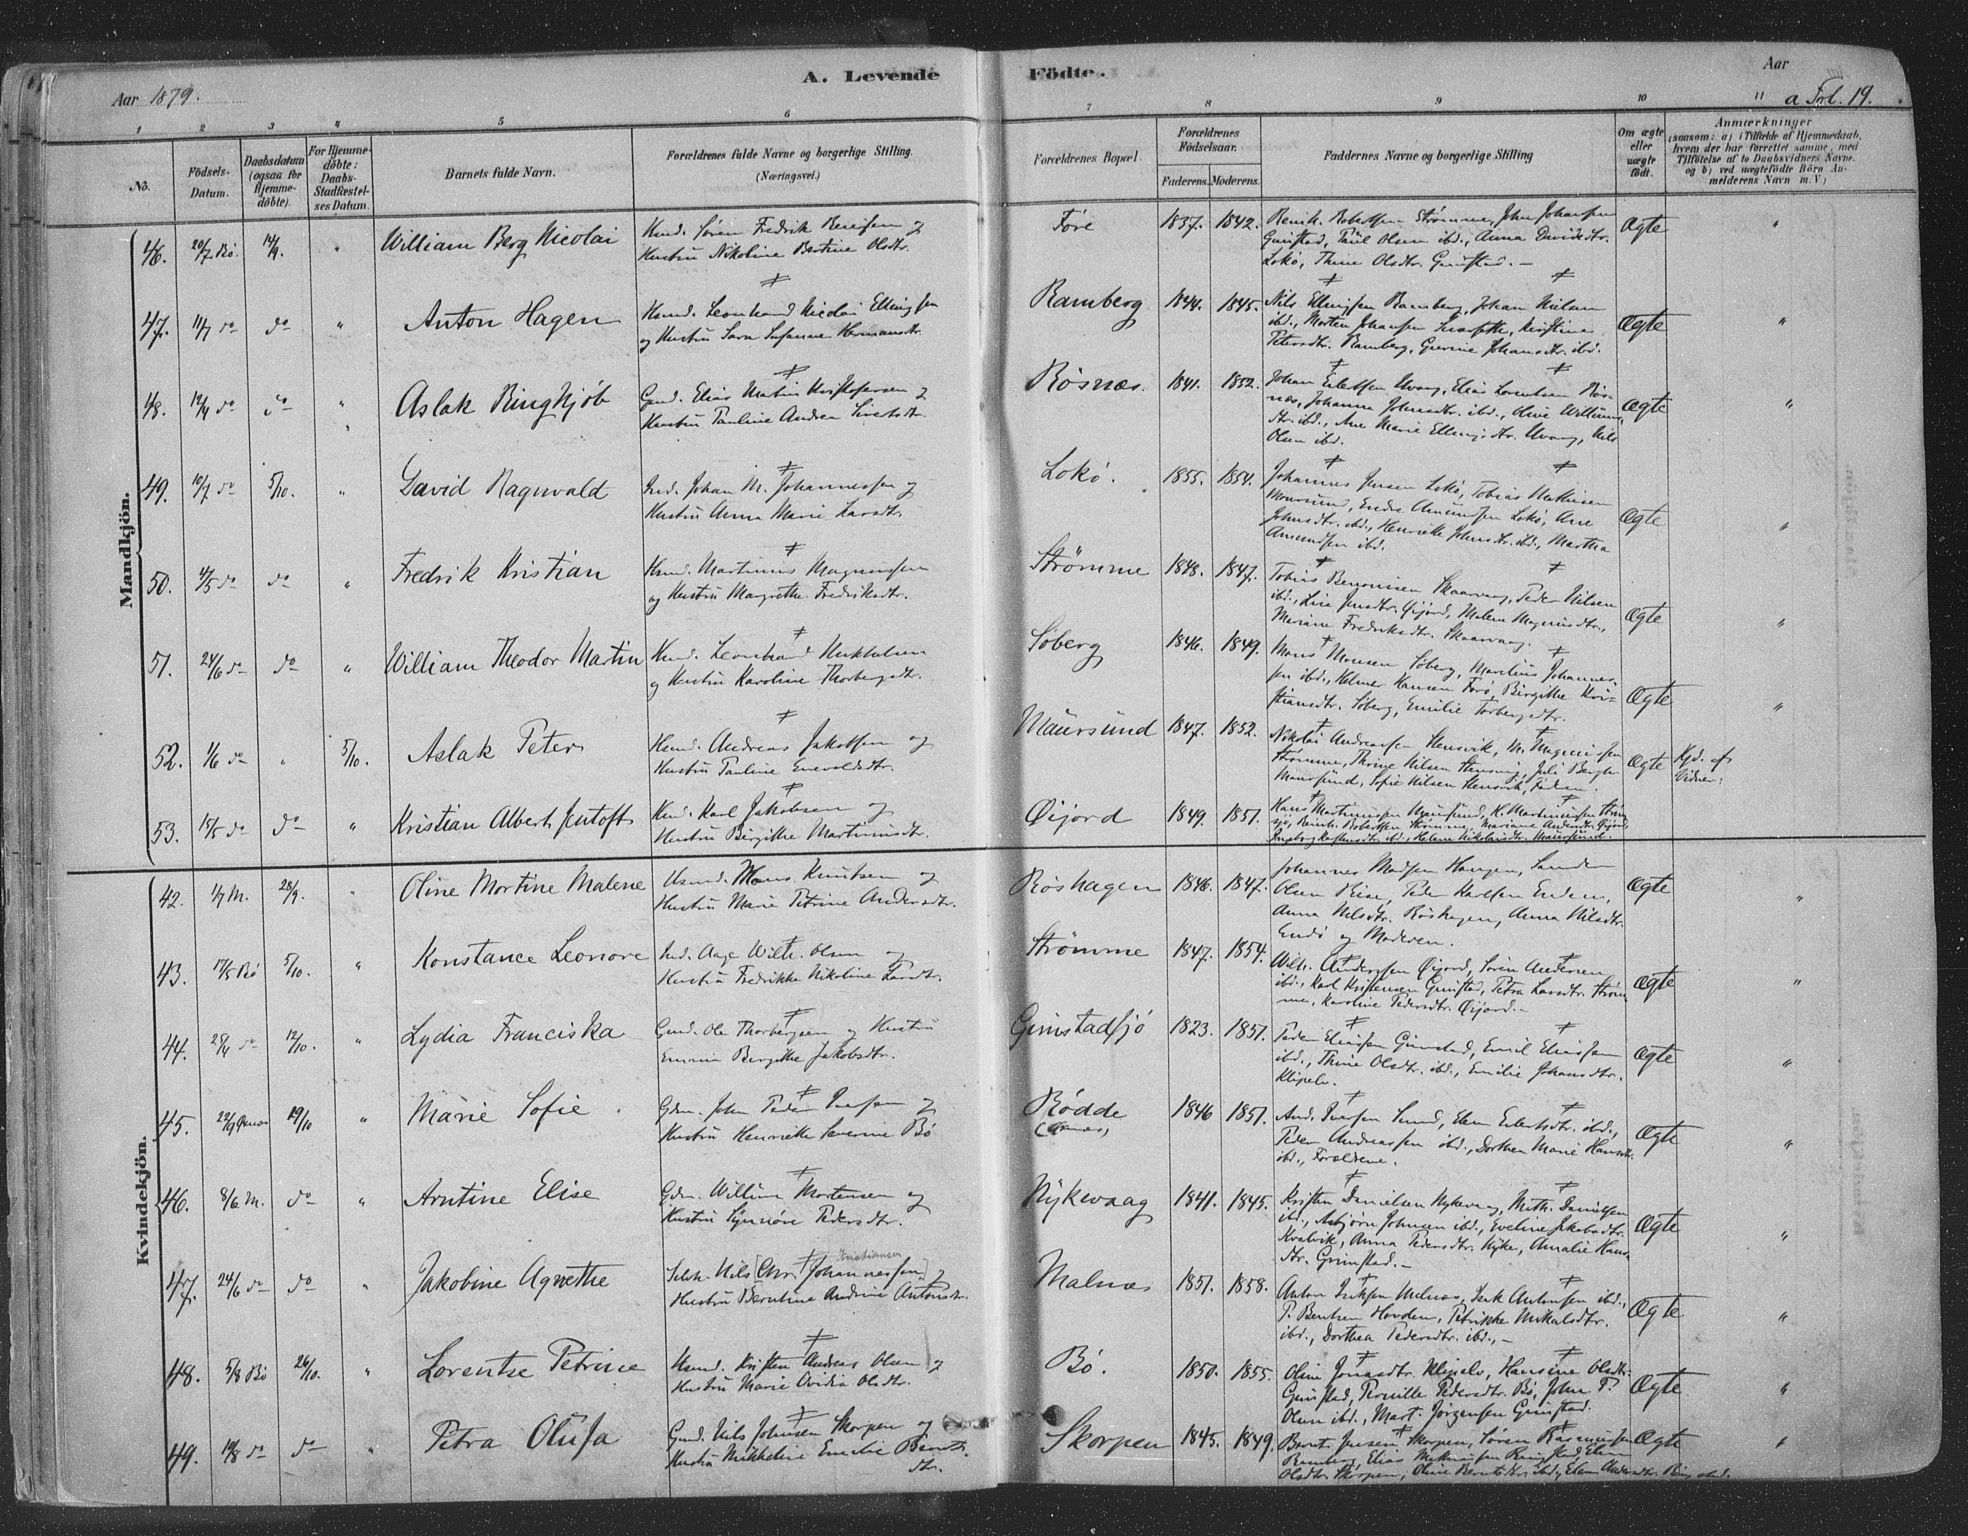 A. Levende Födte.
Aar 1879.
Aar
a Frl. 19.
1 2 3 4 5 6 7 8 9 10 11
No.
Födsels-Datum.
Daabsdatum (ogsaa for Hjemme-döbte).
For Hjemme-döbte: Daabs-Stadfæstel-ses Datum.
Barnets fulde Navn.
Forældrenes fulde Navne og borgerlige Stilling.
(Næringsvei.)
Forældrenes Bopæl.
Forældrenes Födselsaar.
Faderens. Moderens.
Faddernes Navne og borgerlige Stilling
Om ægte eller uægte födt.
Anmærkninger
(saasom: a) i Tilfælde af Hjemmedaab,
hvem der har forrettet samme, med
Tilföielse af to Daabsvidners Navne.
og b) ved uægtefödte Börn An-
melderens Navn m. V.)
Mandkjön.
46. 20/7 Bö. 14/9. " William Berg Nicolai
Kmd. Sören Fredrik Hustru Nikoline Bertine Olsdtr.
Före 1837. 1842.
Renik. Robertsen Strömme, John Johansen
Grimstad, Paul Olsen ibd., Anna Davidsdtr.
Lokö, Thine Olsdtr. Grimstad.
Ægte "
47. 11/7 do do " Anton Hagen
Leonhard Nicolai Ellingsen
og Hustru Sara Susanne Hermansdtr.
Ramberg 1844. 1845.
Nils Ellingsen Ramberg, Johan Nielsen
ibd., Morten Johansen Kristine
Petersdtr. Ramberg, Gurine Johansdtr. ibd.
Ægte "
48. 12/4 do do " Aslak Ringkjöb
Gmd. Elias Martin Kristofersen og
Hustru Pauline Andrea Sivertsdtr.
Rösnæs. 1841. 1852.
Johan Uvaag, Elias Lorentsen Rös-
næs, Johanna Johnsdtr. ibd., Oline Willums-
dtr. ibd., Ane Marie Ellingsdtr. Uvaag, Nils
Olsen ibd.
Ægte "
49. 10/7 do 5/10. " David Ragnvald
Ind. Johan M. Johannessen og
Hustru Anna Marie Larsdtr.
Lokö. 1855. 1854.
Johannes Jensen Lokö, Tobias Mathisen
Maursund, Endre Amundsen Lokö, Ane
Johnsdtr. ibd., Henrikke Johnsdtr. ibd., Martha
Amundsen ibd.
Ægte "
50. 4/5 do do " Fredrik Kristian
Martinus Magnussen
og Hustru Margrethe Fredriksdtr.
Strömme 1848. 1847.
Tobias Benonisen Skaarvaag, Peder Nilsen
ibd., Lise Jensdtr. Öijord, Malene Magnusdtr.,
Mariane Fredriksdtr. Skaarvaag.
Ægte "
51. 24/6 do do " William Theodor Martin
Leonhard
og Hustru Karoline Thorbergsdtr.
Söberg 1846. 1849.
Mons Monsen Söberg, Marelius Johannes-
sen ibd., Helmer Hansen Forö, Birgitte Kri-
stiansdtr. Söberg, Emilie Torbergsdtr.
Ægte "
52. 1/6 do " 5/10. Aslak Peter
Andreas Jakobsen og
Hustru Pauline Enevoldsdtr.
Maursund 1847. 1852.
Nikolai Andreassen Hensvik, M. Magnussen
Strömme, Thrine Nilsen
Maursund, Sofie Nilsen Hensvik, Faderen.
Ægte
Kjd. af
Vidner:
53. 15/5 do do " Kristian Albert Jentoft
Karl Jakobsen og
Hustru Birgitte Martinusdtr.
Öijord 1849. 1851.
Hans Martinussen Maursund, K. Martinussen
Renik. Robertsen Strömme, Mariane Andersdtr. Öijord,
Ingeborg ibd., Helene Nikolaisdtr. Maursund.
Kvindekjön.
42. 1/7 M. 28/9. " Oline Mortine Malene
Mons Knutsen og
Hustru Marie Petrine Andersdtr.
Röshagen 1846. 1847.
Johannes Madsen Haugen,
Olsen Peder Karlsen
Anna Nilsdtr. Röshagen, Anna Nilsdtr.
Endö og Moderen.
Ægte "
43. 17/5 Bö 5/10. " Konstance Leonore
Ind. Aage Wilh. Olsen og
Hustru Fredrikke Nikoline Larsdtr.
Strömme 1847. 1854.
Wilh. Anderssen Öijord, Sören Andersen
ibd., Karl Kristensen Grimstad, Petra Larsdtr. Ström-
me, Karoline Pedersdtr. Öijord.
Ægte "
44. 25/4 do 12/10. " Lydia Franciska
Gmd. Ole Thorbergsen og Hustru
Emmie Bergitte Jakobsdtr.
Grimstadsjö 1823. 1851.
Peder Eliassen Grimstad, Emil Eliassen
ibd., Thine Olsdtr. ibd., Emilie Johansdtr.
Klipelv.
Ægte "
45. 22/9 Øxnæs 19/10 " Marie Sofie
Gdm. John Peder Iversen og
Hustru Henrikke Severine Bö
Rödde
(Øxnæs) 1846 1851.
And. Iversen Sund, Elen Eilertsdtr. ibd.,
Peder Andreassen ibd., Dorthea Marie Hansdtr.
ibd., Forældrene.
Ægte "
46. 8/6 M. do " Arntine Elise
Gdm. William Mortensen og
Hustru Synnöve Pedersdtr.
Nykvaag 1841. 1845.
Kristen Danielsen Nykvaag, Mith. Danielsen
ibd., Asbjörn Johnsen ibd., Eveline Jakobsdtr.
Kvalvik, Anna Pedersdtr. Nyke, Amalie Hans-
dtr. Grimstad.
Ægte "
47. 24/6 do do " Jakobine Agnethe
Kristiansen
Selvh. Nils [Chr. Johannessen] og
Hustru Berntine Andrine Antonsdtr.
Malnæs 1851. 1858.
Anton Eriksen Malnæs, Isak Antonsen ibd.,
P. Bentsen Hovden, Petrikke Mikalsdtr.
ibd., Dorthea Pedersdtr. ibd.,
Ægte "
48. 5/8 Bö 26/10. " Lorentse Petrine
Kristen Andreas Olsen og
Hustru Marie Ovidia Olsdtr.
Bö. 1850. 1855.
Oline Jonasdtr. Klipelv, Hansine Olsdtr.
Grimstad, Pernille Pedersdtr. Bö, John P.
Olsen ibd., Mart. Jörgensen Grimstad.
Ægte "
49. 19/8 do do " Petra Olufa
Gmd. Nils Johnsen Skorpen og
Hustru Mikkeline Emilie Bernts-
dtr.
Skorpen 1845. 1849.
Bernt Jensen Skorpen, Sören Rasmussen
Ramberg, Elias Mathisen Ringstad, Elen
Olsdtr. Skorpen, Oline Berntsdtr. ibd., Elen Andersdtr. Ringstad.
Ægte "